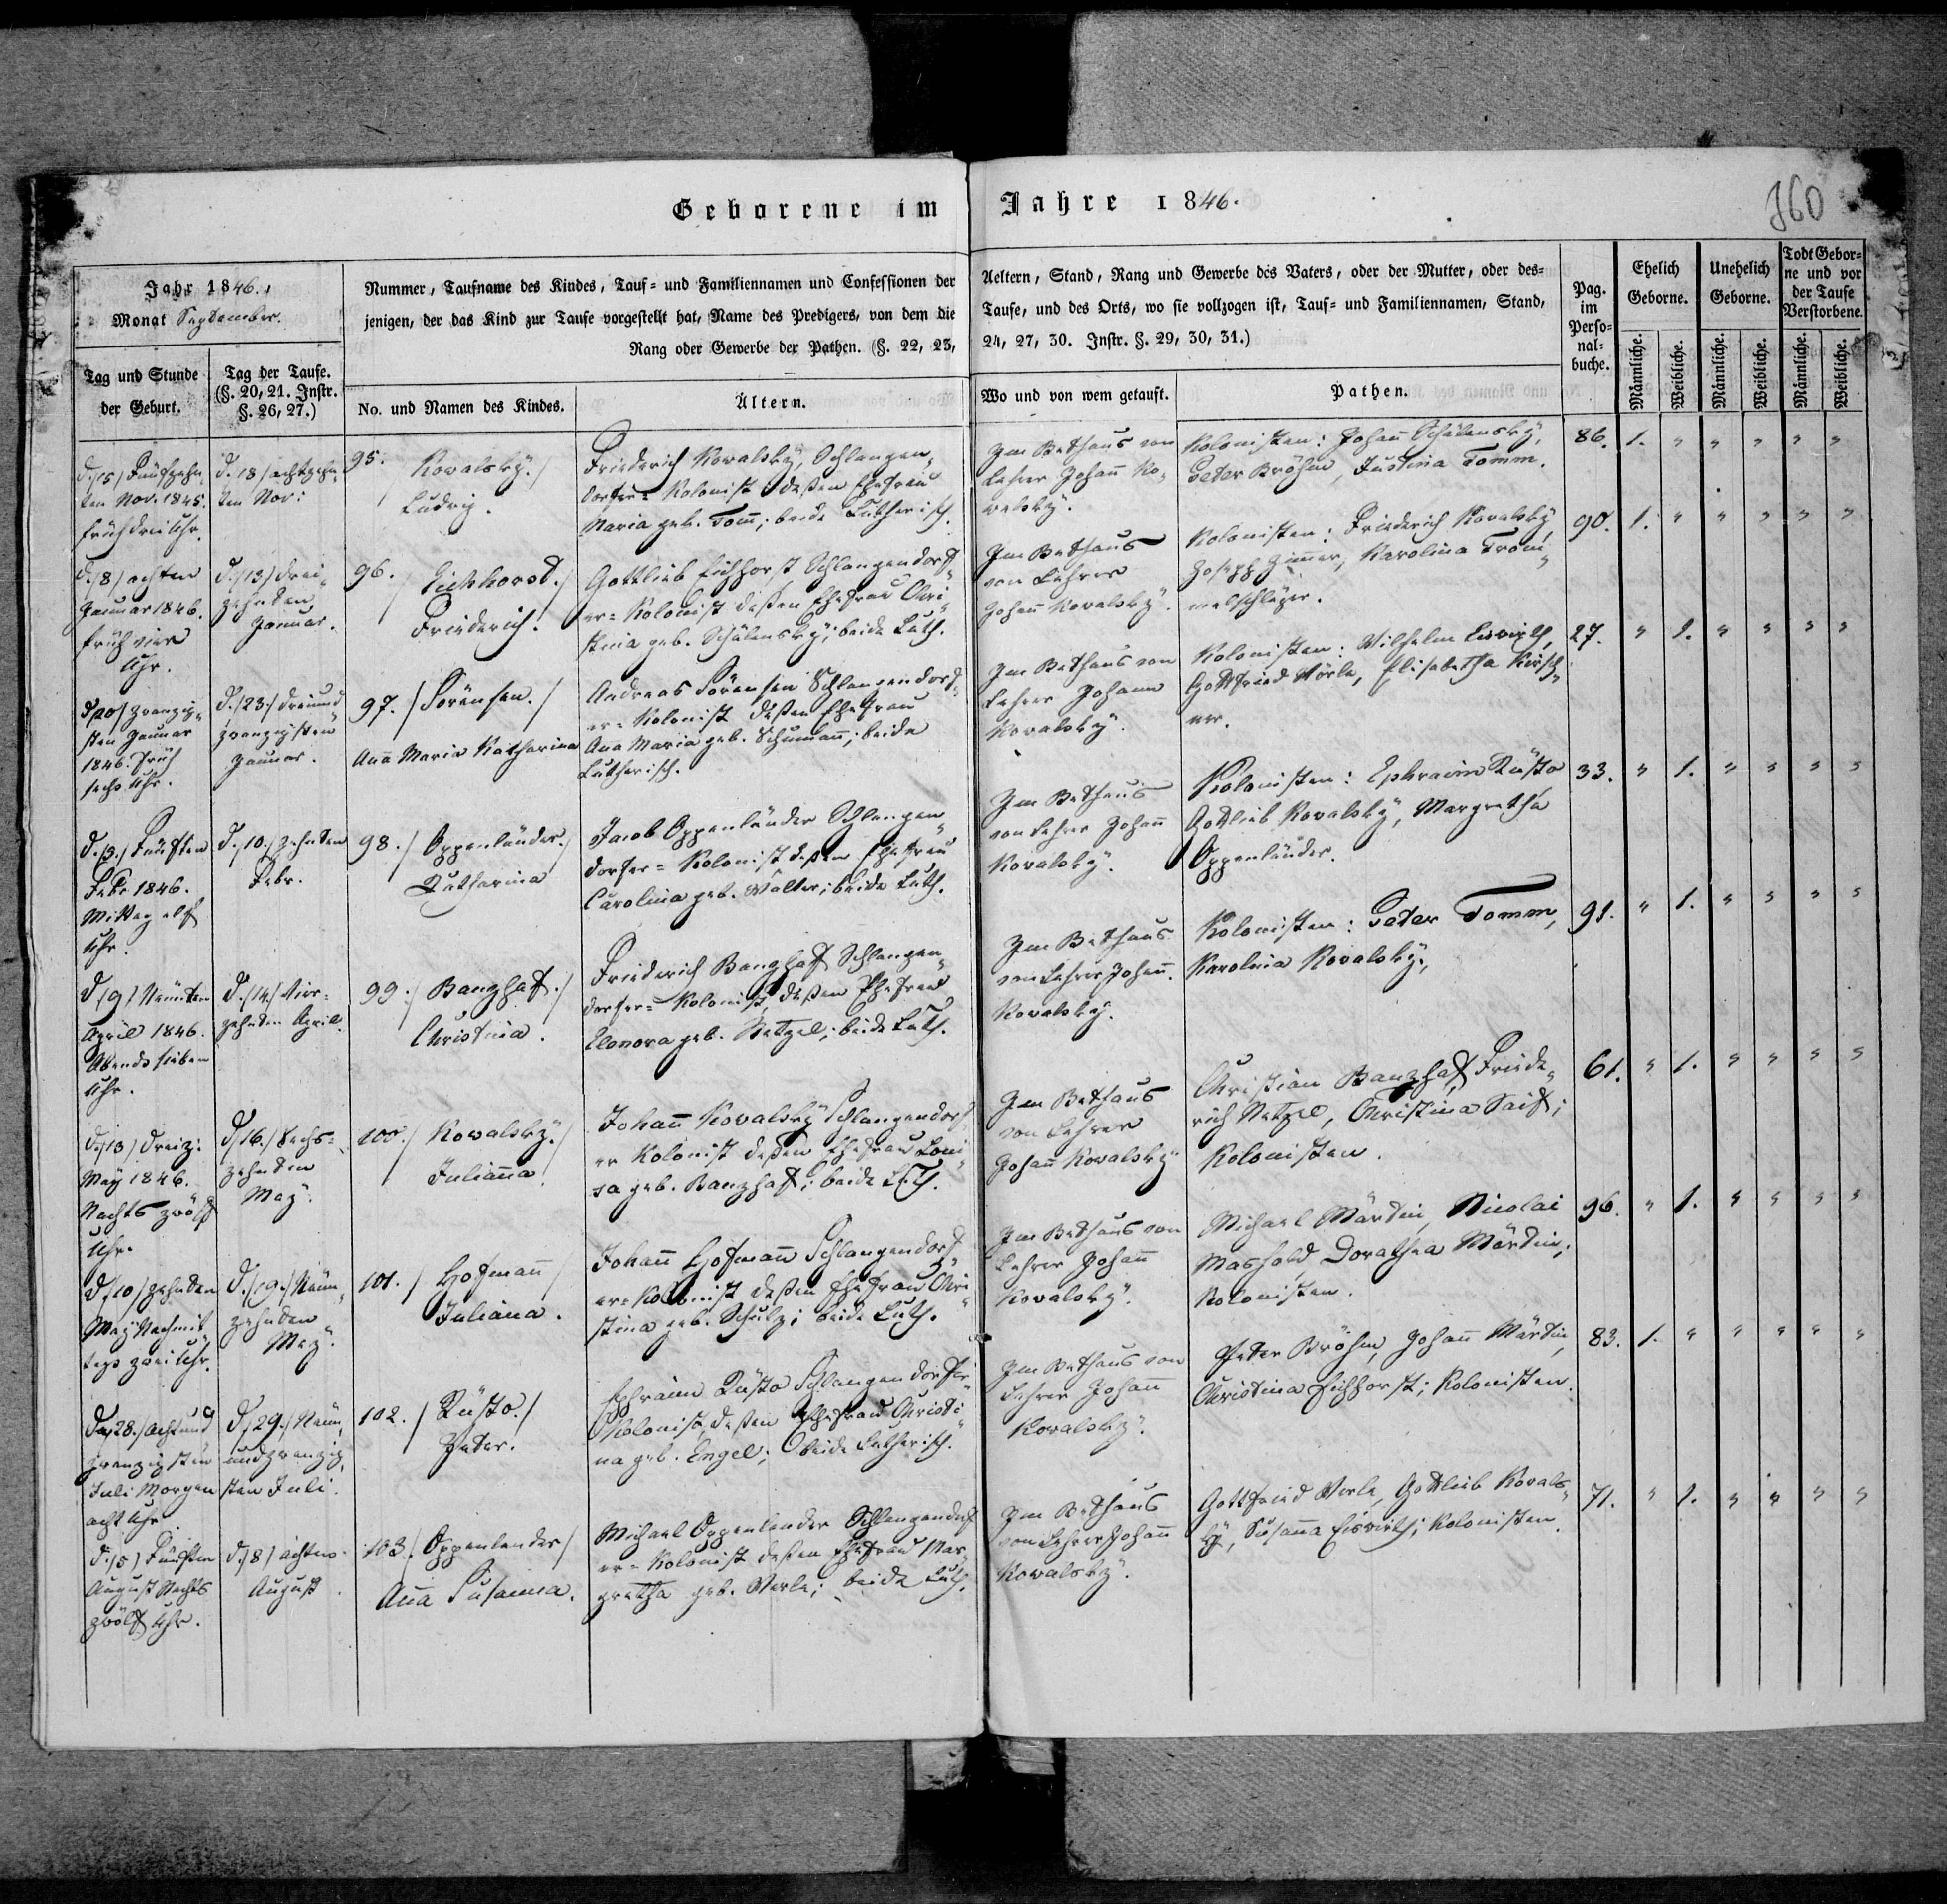 Geborene im Jahre 1846.
360
Jahr 1846.
Monat September.
Nummer, Taufname des Kindes, Tauf- und Familiennamen und Confessionen der
jenigen, der das Kind zur Taufe vorgestellt hat, Name des Predigers, von dem die
Rang oder Gewerbe der Pathen. (§. 22, 23,
Aeltern, Stand, Rang und Gewerbe des Vaters, oder der Mutter, oder des-
Taufe, und des Orts, wo sie vollzogen ist, Tauf- und Familiennamen, Stand,
24, 27, 30. Instr. §. 29, 30, 31.)
Pag.
im
Perso-
nal-
buche.
Ehelich
Geborne.
Unehelich
Geborne.
Todt Gebor-
ne und vor
der Taufe
Verstorbene.
Männliche.
Weibliche.
Männliche.
Weibliche.
Männliche.
Weibliche.
Tag und Stunde
der Geburt.
Tag der Taufe.
(§. 20, 21. Instr.
§. 26, 27.)
No. und Namen des Kindes.
Ältern.
Wo und von wem getauft.
Pathen.
d. /15/ Fünfzehn
ten Nov. 1845.
früh drei Uhr.
d. /18/ achtzehn
ten Nov:
95. / Kovalsky. /
Ludwig.
Friederich Kovalsky, Schlangen„
dorfer= Kolonist deßen Ehefrau
Maria geb. Tom̄; beide Lutherisch.
Im Bethaus von
Lehrer Johan̄ Ko„
valsky.
Kolonisten: Johan̄ Schälensky,
Peter Bröhm, Justina Tomm.
86. 1. " " " " "
d. /8/ achten
Januar 1846.
früh vier
Uhr.
d. /13/ drei„
zehnten
Januar.
96. / Eichhorst. /
Friederich.
Gottlieb Eichhorst Schlangendorf„
er= Kolonist deßen Ehefrau Chri„
stina geb. Schälensky; beide Luth.
Im Bethaus
von Lehrer
Johan̄ Kovalsky.
Kolonisten: Friederich Kovalsky
Joseph Zimmer, Karolina Trom„
melschläger.
90. 1. " " " " "
d. /20/ zwanzig„
sten Januar
1846. Früh
sechs Uhr.
d. /23/ dreiund
zwanzigsten
Januar.
97. / Sörensen. /
An̄a Maria Katharina
Andreas Sörensen Schlangendorf„
er= Kolonist deßen Ehefrau
An̄a Maria geb. Schuman̄; beide
Lutherisch.
Im Bethaus von
Lehrer Johann
Kovalsky.
Kolonisten: Wilhelm
Gottfried Wörle, Elisabetha Kirsch„
ner.
27. " 1. " " " "
d. /5./ Fünften
Febr 1846.
Mittag elf
Uhr.
d. /10./ Zehnten
Febr.
98. / Oppenländer. /
Katharina
Jacob Oppenländer Schlangen„
dorfer= Kolonist deßen Ehefrau
Carolina geb. Walter; beide Luth.
Im Bethaus
von Lehrer Johan̄
Kovalsky.
Kolonisten: Ephraim Rüsto
Gottlieb Kovalsky, Margretha
Oppenländer.
33. " 1. " " " "
d. /9/ Neunten
April 1846.
Abends sieben
Uhr.
d. /14./ Vier=
zehnten April.
99. / Banzhaf. /
Christina.
Friederich Banzhaf Schlangen„
dorfer= Kolonist, deßen Ehefrau
Elonora geb. Netzel; beide Luth.
Im Bethaus
von Lehrer Johan̄.
Kovalsky.
Kolonisten: Peter Tomm,
Karolina Kovalsky;
91. " 1. " " " "
d. /13/ Dreiz:
May 1846.
Nachts zwölf
Uhr.
d. /16./ Sechs=
zehnten
May.
100. / Kovalsky. /
Julian̄a.
Johan̄ Kovalsky Schlangendorf„
er Kolonist deßen Ehefrau Loui„
sa geb. Banzhaf; beide Luth.
Im Bethaus
von Lehrer
Johan̄ Kovalsky
Christian Banzhaf, Friede„
rich Netzel, Christina Saif;
Kolonisten.
61. " 1. " " " "
d. /10/ zehnten
May Nachmit
tags zwei Uhr.
d. /19./ Neun„
zehnten
May.
101. / Hofman̄ /
Juliana.
Johan̄ Hofman̄ Schlangendorf„
er= Kolonist deßen Ehefrau Chri„
stina geb. Schulz; beide Luth.
Im Bethaus von
Lehrer Johan̄
Kovalsky.
Michael Märtin, Nicolai
Mashold, Dorathea Märtin;
Kolonisten.
96. " 1. " " " "
d. /28./ Achtund
zwanzigsten
Juli Morgen
acht Uhr
d. /29./ Neun„
undzwanzig„
sten Juli.
102. / Rüsto. /
Peter.
Ephraim Rüsto Schlangendorfer
Kolonist, deßen Ehefrau Christi„
na geb. Engel; beide Lutherisch.
Im Bethaus von
Lehrer Johan̄
Kovalsky.
Peter Bröhm, Johan̄ Märtin,
Christina Eichhorst; Kolonisten.
83. 1. " " " " "
d. /5/ Fünften
August Nachts
zwölf Uhr.
d. /8/ achten
August.
103. / Oppenlender /
An̄a Susanna.
Michael Oppenlender Schlangendorf
er= Kolonist deßen Ehefrau Mar„
gretha geb. Werle; beide Luth.
Im Bethaus
von Lehrer Johan̄
Kowalsky.
Gottfried Werle, Gottlieb Kovals„
ky, Susan̄a; Kolonisten.
71. " 1. " " " "